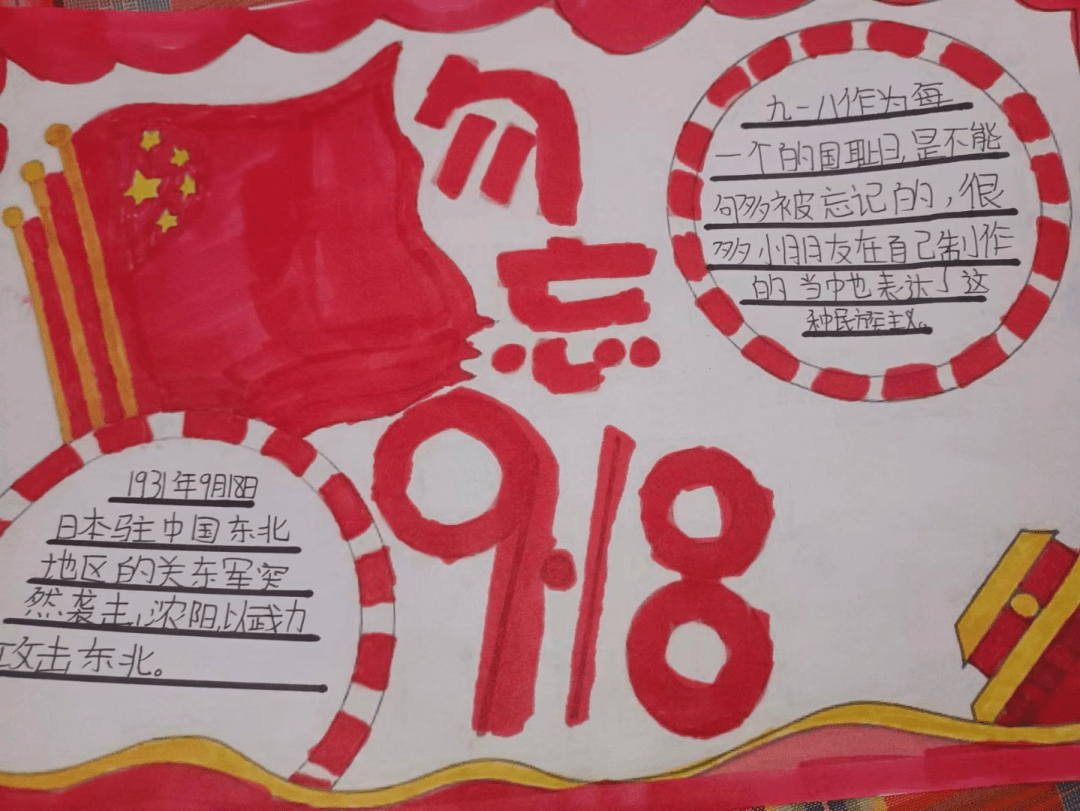 勿
忘
9·18
九一八作为每
一个的国耻日,是不能
够被忘记的,很
多小朋友在自己制作
的当中也表达了这
种民族主义。
1931年9月18日
日本驻中国东北
地区的关东军突
然袭击,浓阳,以武力
攻击东北。